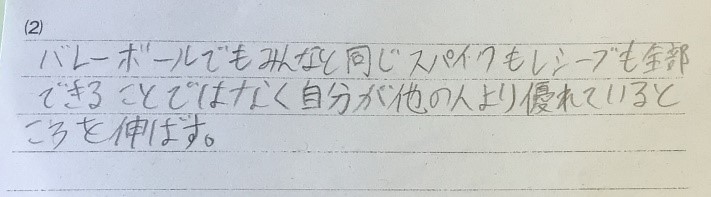 (2)
バレーボールでもみんなと同じスパイクもレシーブも全部
できることではなく自分が他の人より優れていると
ころを伸ばす。